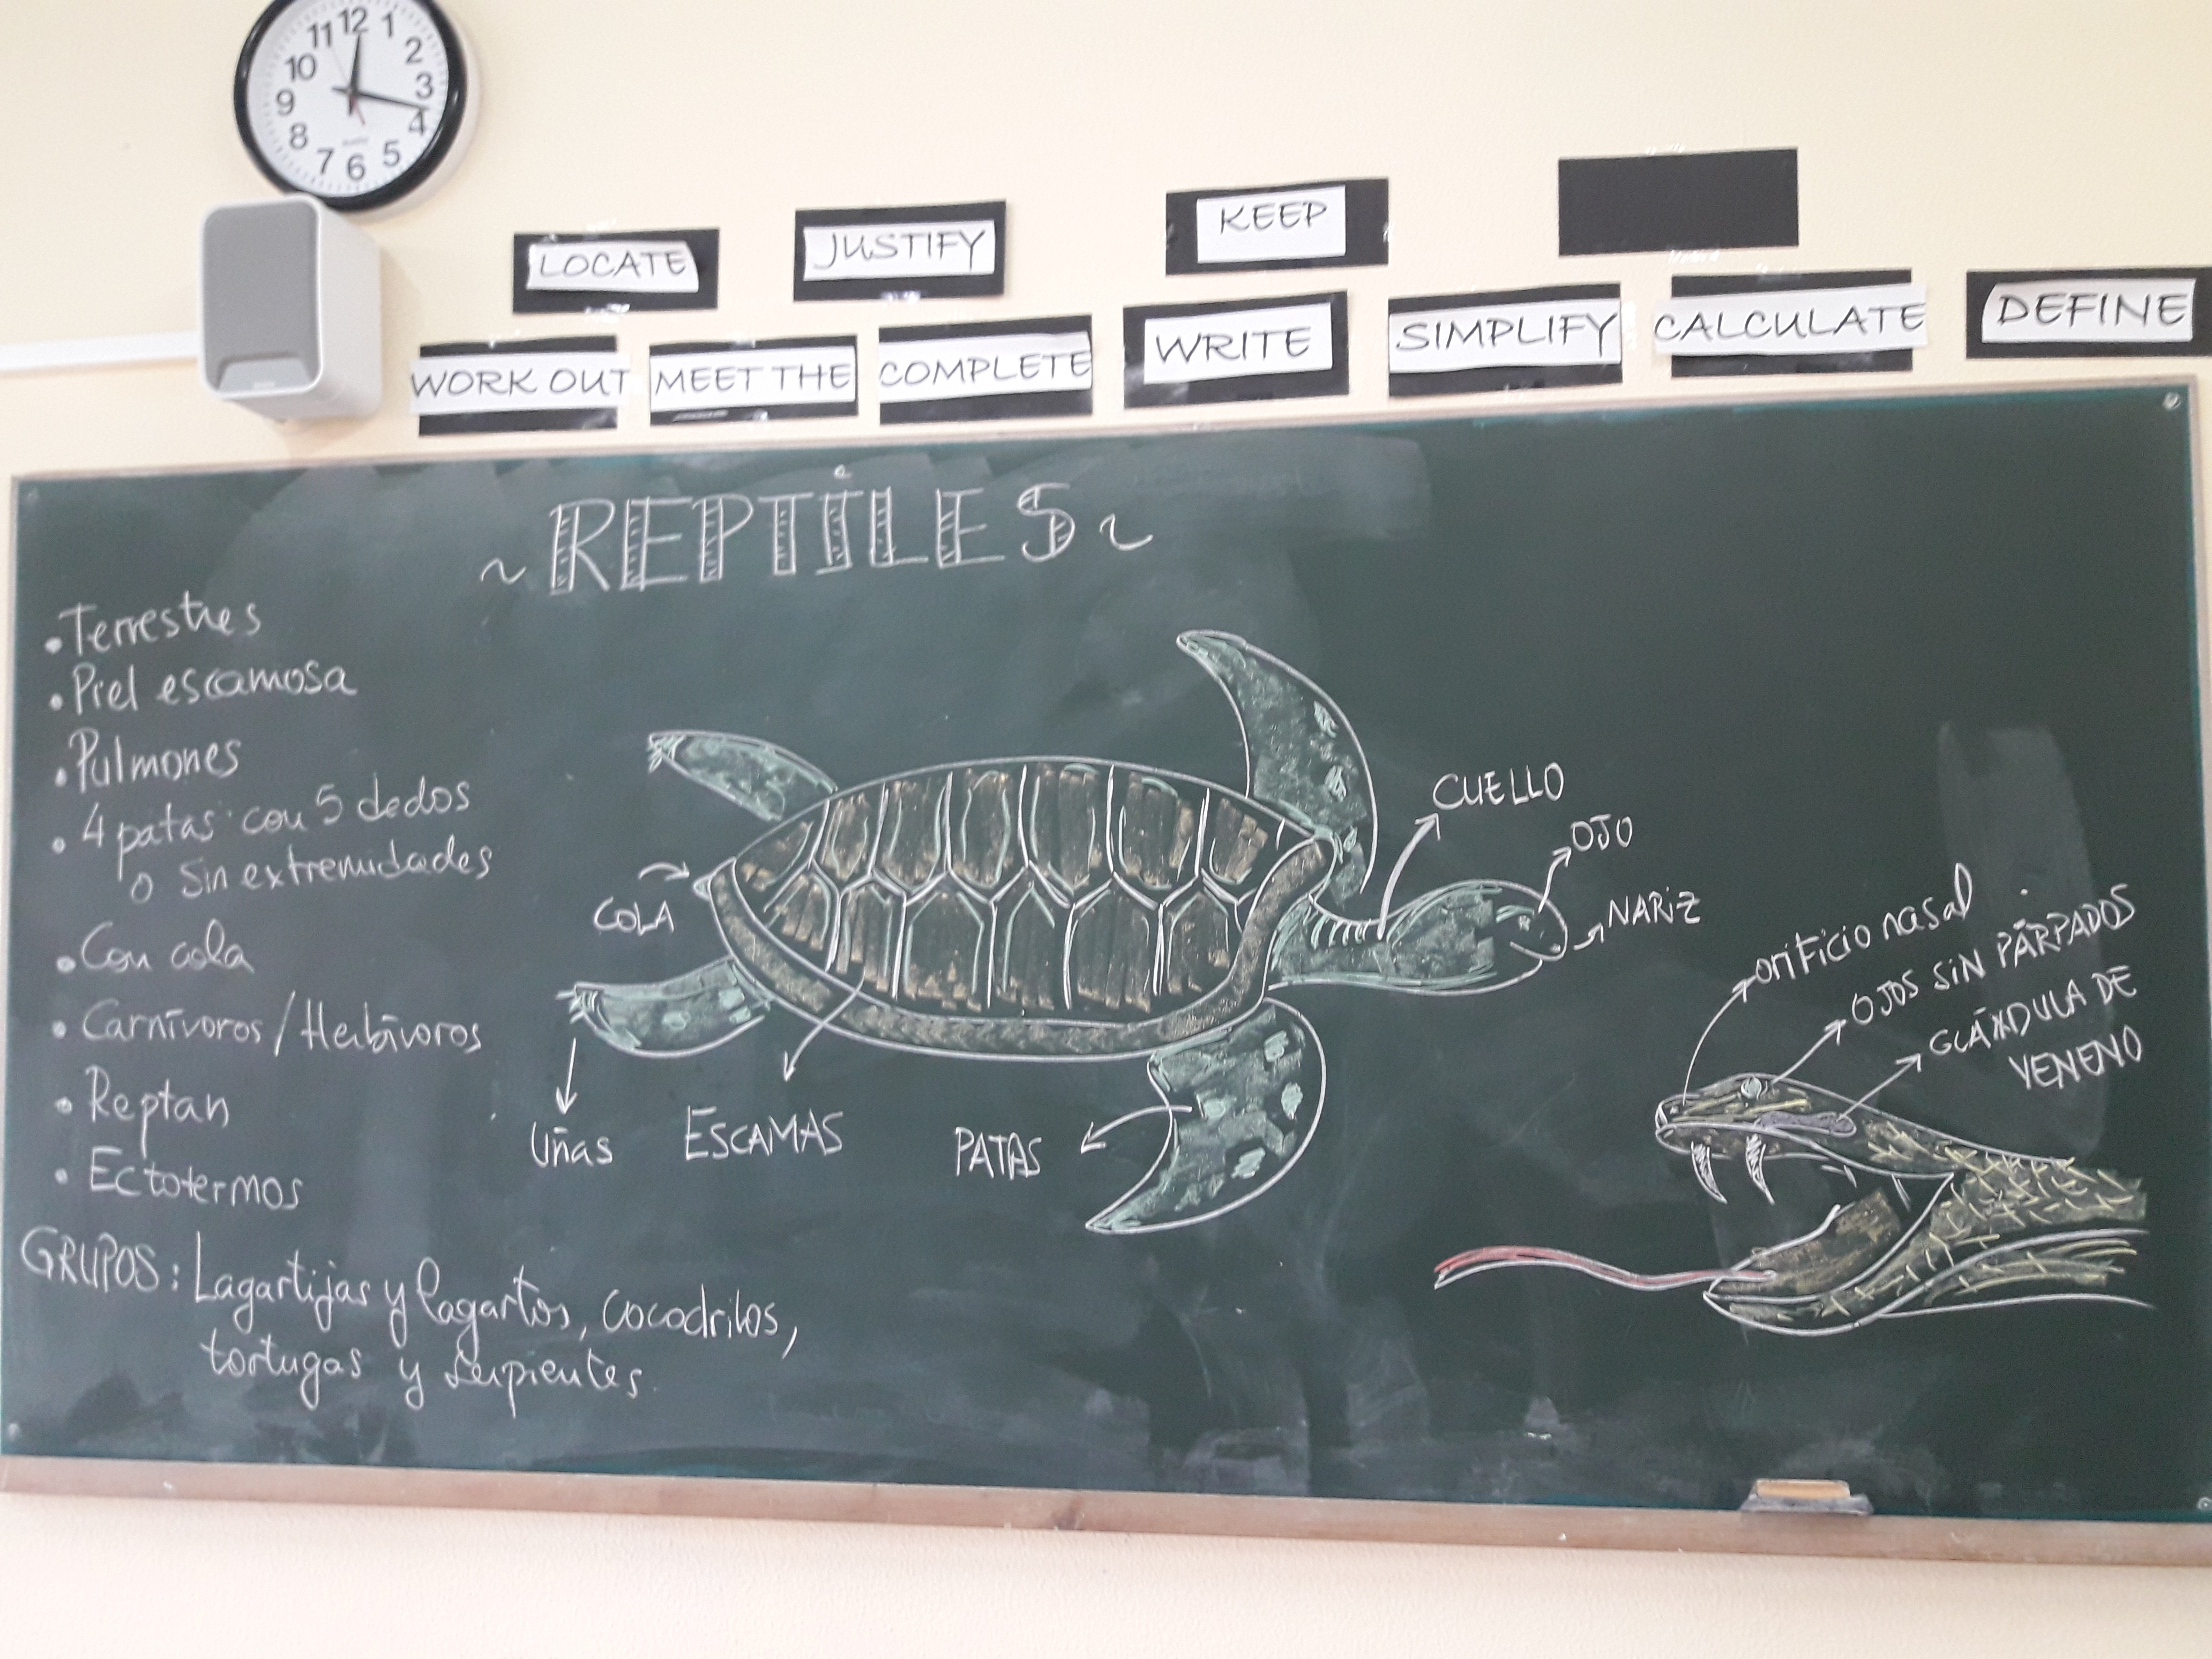 12
11 1
10 2
9 3
8 4
7 6 5
LOCATE JUSTIFY KEEP
WORK OUT MEET THE COMPLETE WRITE SIMPLIFY CALCULATE DEFINE
~REPTILES~
• Terrestres
• Piel escamosa
• Pulmones
• 4 patas con 5 dedos
o sin extremidades
• Con cola
• Carnívoros/Herbívoros
• Reptan
• Ectotermos
GRUPOS: Lagartijas y lagartos, cocodrilos,
tortugas y serpientes.
CUELLO
OJO
NARIZ
COLA
Uñas
ESCAMAS
PATAS
orificio nasal
OJOS SIN PÁRPADOS
GLÁNDULA DE
VENENO